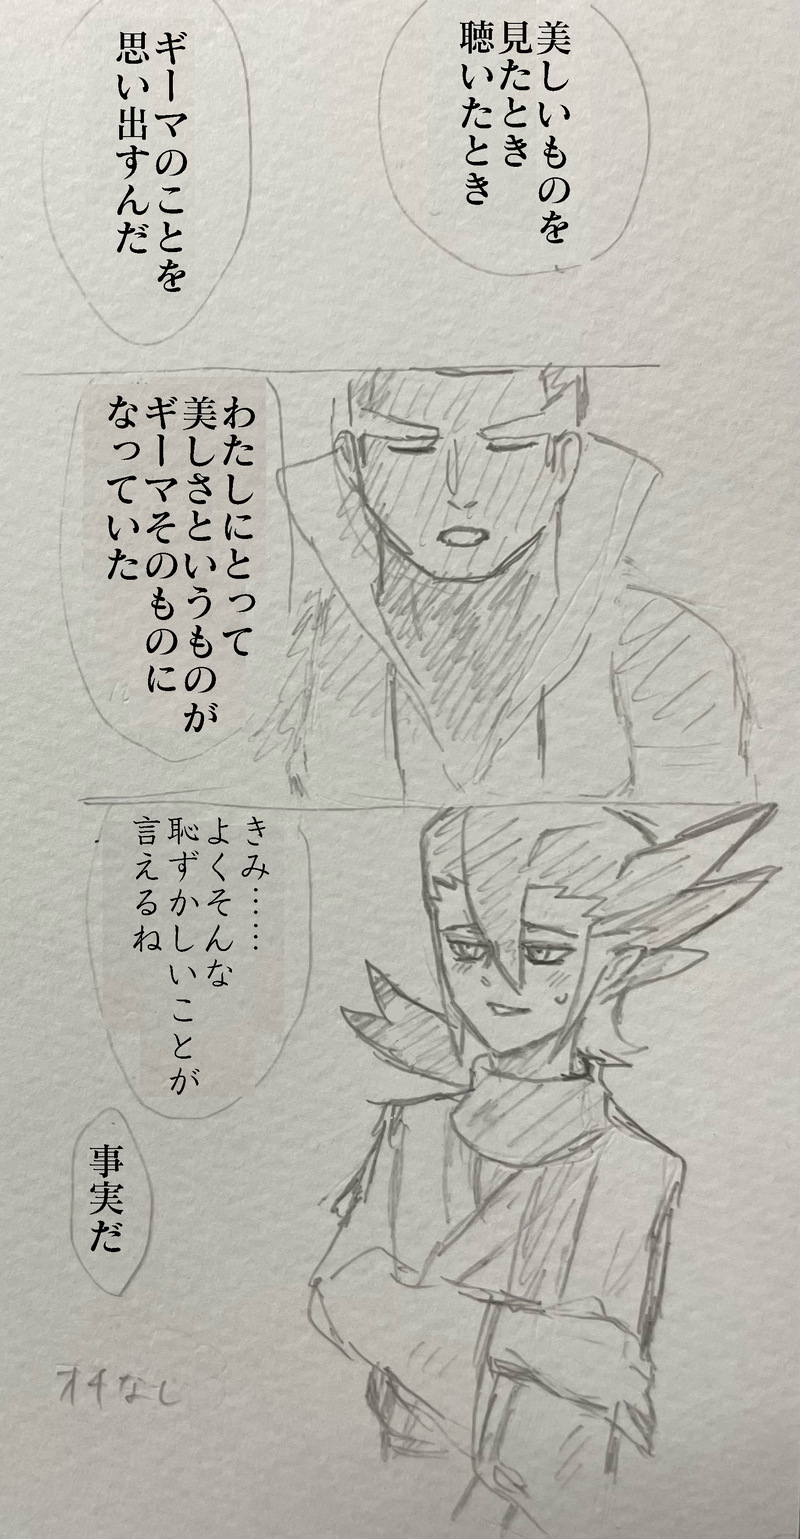 美しいものを
見たとき
聴いたとき
ギーマのことを
思い出すんだ
わたしにとって
美しさというものが
ギーマそのものに
なっていた
きみ……
よくそんな
恥ずかしいことが
言えるね
事実だ
オチなし